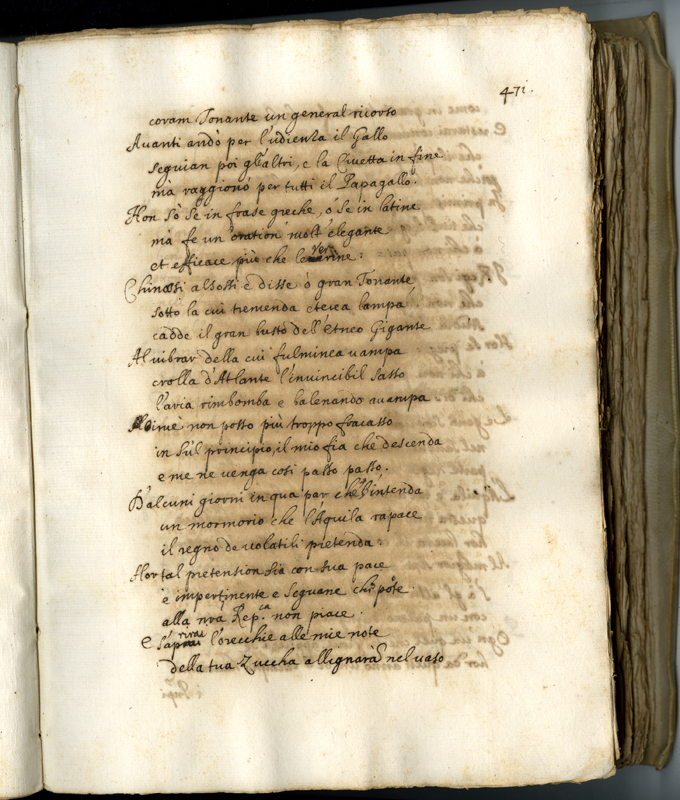 471.
coram Tonante un general ricorso
Avanti andò per l'udienza il Gallo
seguian poi gl'altri, e la Civetta in fine
mà raggionò per tutti il Papagallo.
Non sò se in frase greche, ò se in latine
mà fè un'oration molt'elegante
et efficace più che le Verrine:
Chinossi al sosti e disse ò gran Tonante
sotto la cui tremenda eterea lampa
cadde il gran busto dell'Etneo Gigante
Al vibrar della cui fulminea vampa
crolla d'Atlante l'invincibil sasso
l'aria rimbomba e balenando avampa
Oimè non posso più troppo fracasso
in sul principio, il mio fia che descenda
e me ne venga così passo passo.
D'alcuni giorni in qua par che s'intenda
un mormorio che l'Aquila rapace
il regno de volatili pretenda:
Hor tal pretension sia con sua pace
è impertinente e seguane che pote
alla nra Rep.ca non piace.
E s'aprirai l'orecchie alle mie note
della tua Zuccha allignarà nel vaso